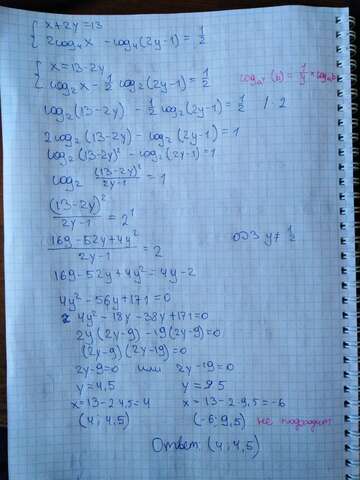 { x+2y=13
2log₄x - log₄(2y-1)=1/2
{ x=13-2y
log₂x - 1/2 log₂(2y-1)=1/2
log_aʸ(b)=1/y*log_a b
log₂(13-2y) - 1/2 log₂(2y-1)=1/2 /·2
2log₂(13-2y)-log₂(2y-1)=1
log₂(13-2y)² - log₂(2y-1)=1
log₂ (13-2y)²/(2y-1) =1
(13-2y)²/(2y-1) = 2¹
(169-52y+4y²)/(2y-1) = 2 ОДЗ y≠1/2
169-52y+4y²=4y-2
4y²-56y+171=0
4y²-18y-38y+171=0
2y(2y-9)-19(2y-9)=0
(2y-9)(2y-19)=0
2y-9=0 или 2y-19=0
y=4,5 y=9,5
x=13-2·4,5=4 x=13-2·9,5=-6
(4; 4,5) (-6; 9,5) не подходит
Ответ: (4; 4,5)